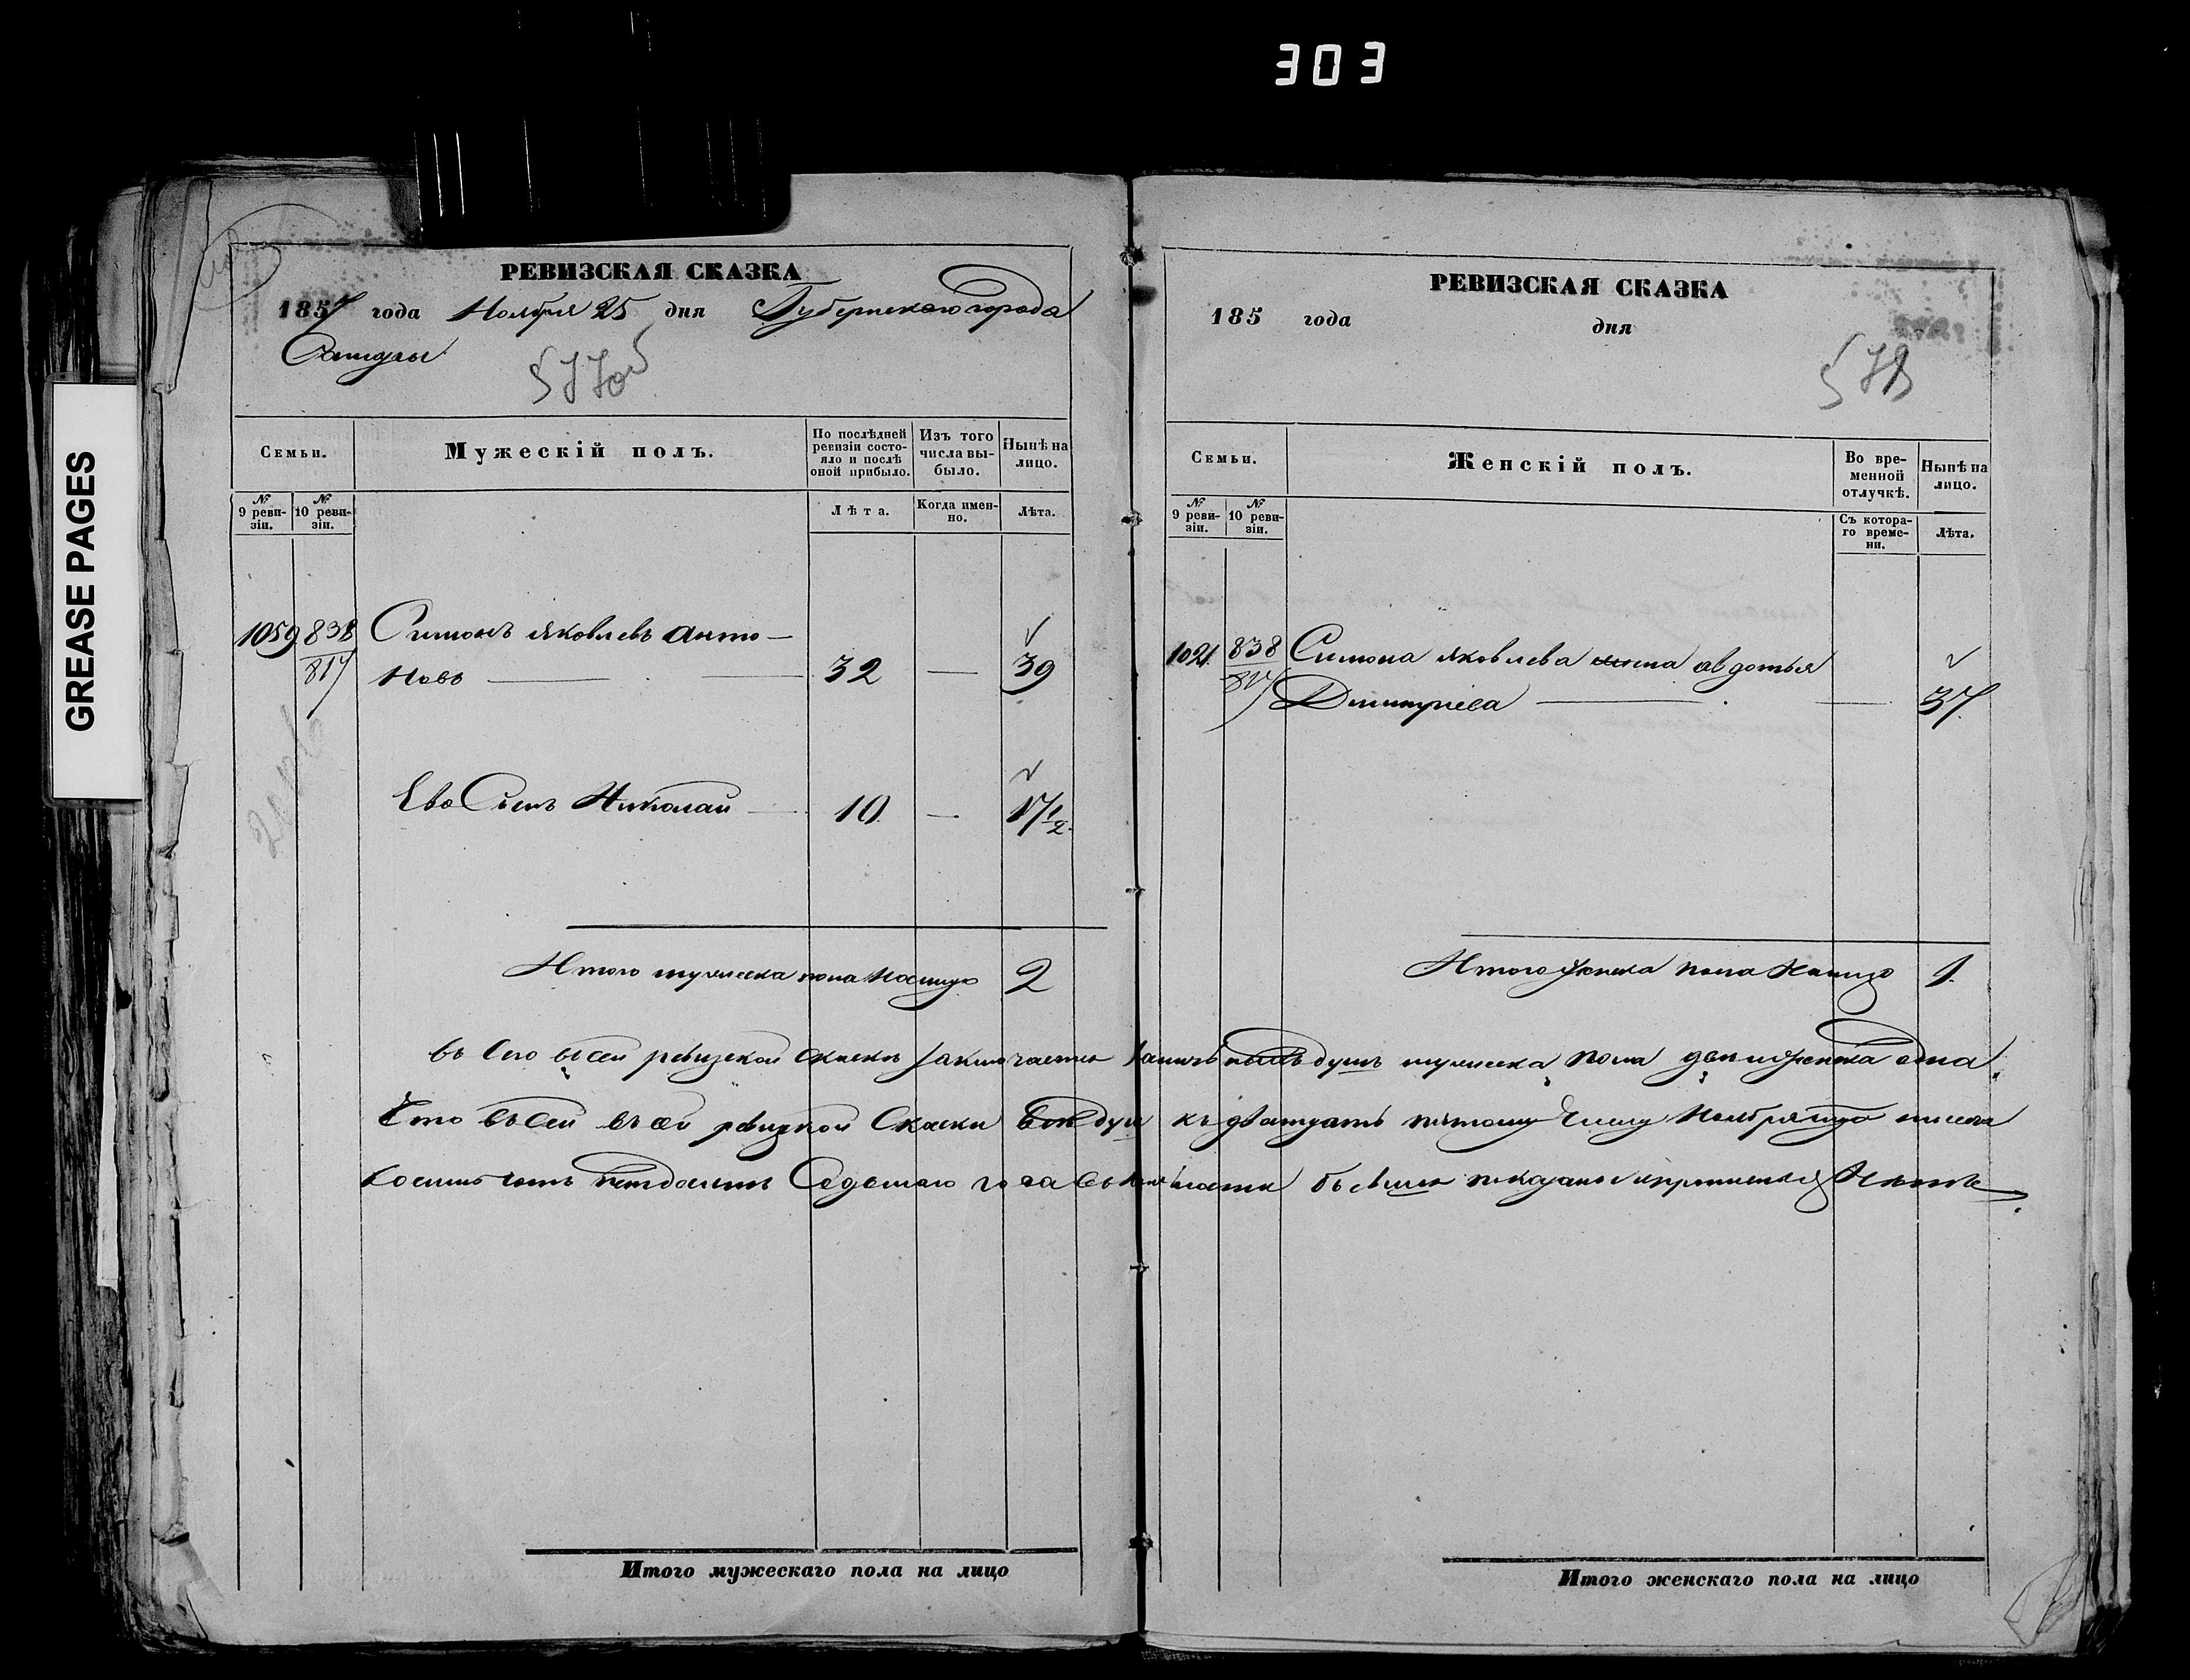 303
GREASE PAGES
РЕВИЗСКАЯ СКАЗКА
1857 года Ноября 25 дня Губернскаго города
Самары
Семьи.
Мужескій полъ.
По послѣдней ревизіи состо-
яло и послѣ оной прибыло.
Изъ того числа вы-
было.
Нынѣ на лицо.
№ 9 реви-
зіи.
№ 10 реви-
зіи.
Лѣта.
Когда имен-
но.
Лѣта.
1059 838 Симонъ Яковлевъ Анто-
817 новъ — 32 — 39
Ево Сынъ Николай — 10 — 17 1/2
Итого мужеска пола налицо 2
РЕВИЗСКАЯ СКАЗКА
185 года дня
578
Семьи.
Женскій полъ.
Во вре-
менной отлучкѣ.
Нынѣ на лицо.
№ 9 реви-
зіи.
№ 10 реви-
зіи.
Съ котора-
го време-
ни.
Лѣта.
1021 838 Симона Яковлева жена Авдотья
817 Дмитріева — 37
Итого женска пола налицо 1
въ сей ревизской скаски заключается душъ мужеска пола две и женска одна.
Что въ сей ревизской скаски къ дватцать пятому числу Ноября
седьмаго года показаны и прописных Нетъ
Итого мужескаго пола на лицо
Итого женскаго пола на лицо